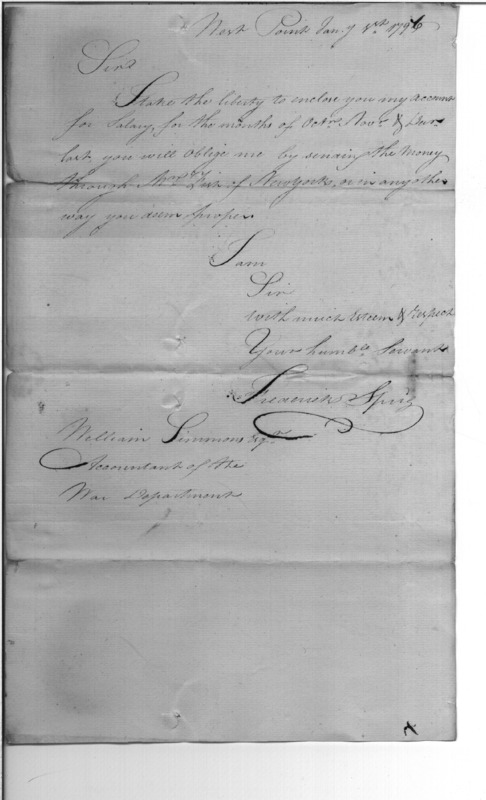 West Point Jany 1st 1796
Sir
I take the liberty to enclose you my account
for Salary, for the months of Octr. Novr. & Decr.
last, you will oblige me by sending the money
through of New York, or in any other
way you deem proper.
I am
Sir
with much esteem & respect
Your humble Servant
Frederick Sprig
William Simmons Esqr.
Accountant of the
War Department